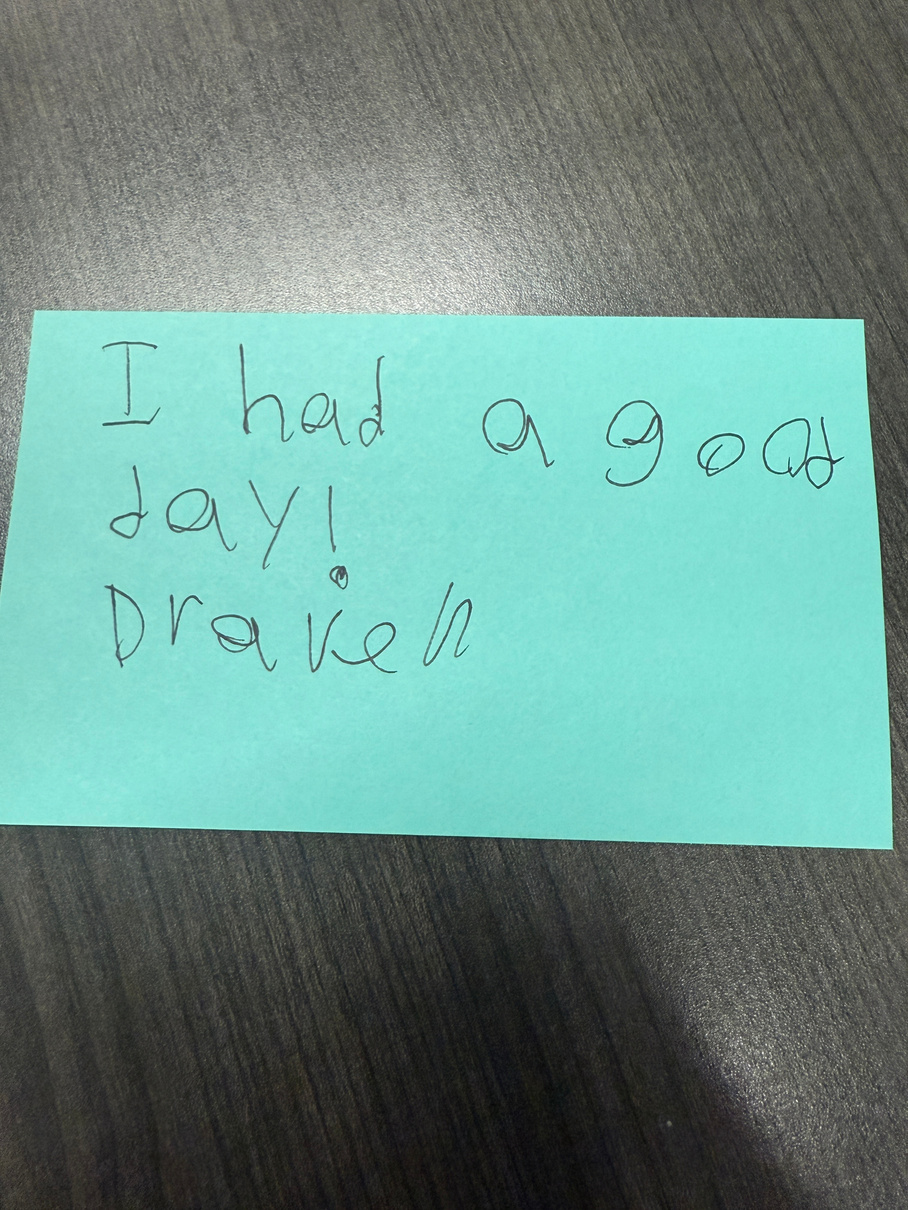 I had a good
day!
Draven